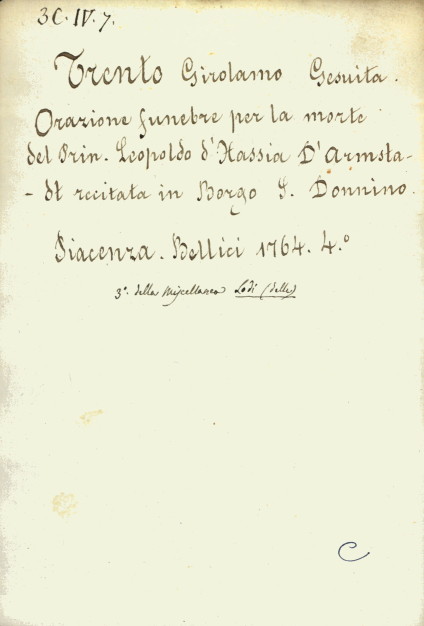 3C.IV.7.
Trento Girolamo Gesuita.
Orazione funebre per la morte
del Prin. Leopoldo d'Hassia D'Armsta-
- dt recitata in Borgo S. Donnino.
Piacenza. Bellici 1764. 4.°
3°. della Miscellanea Lodi (delle)
C